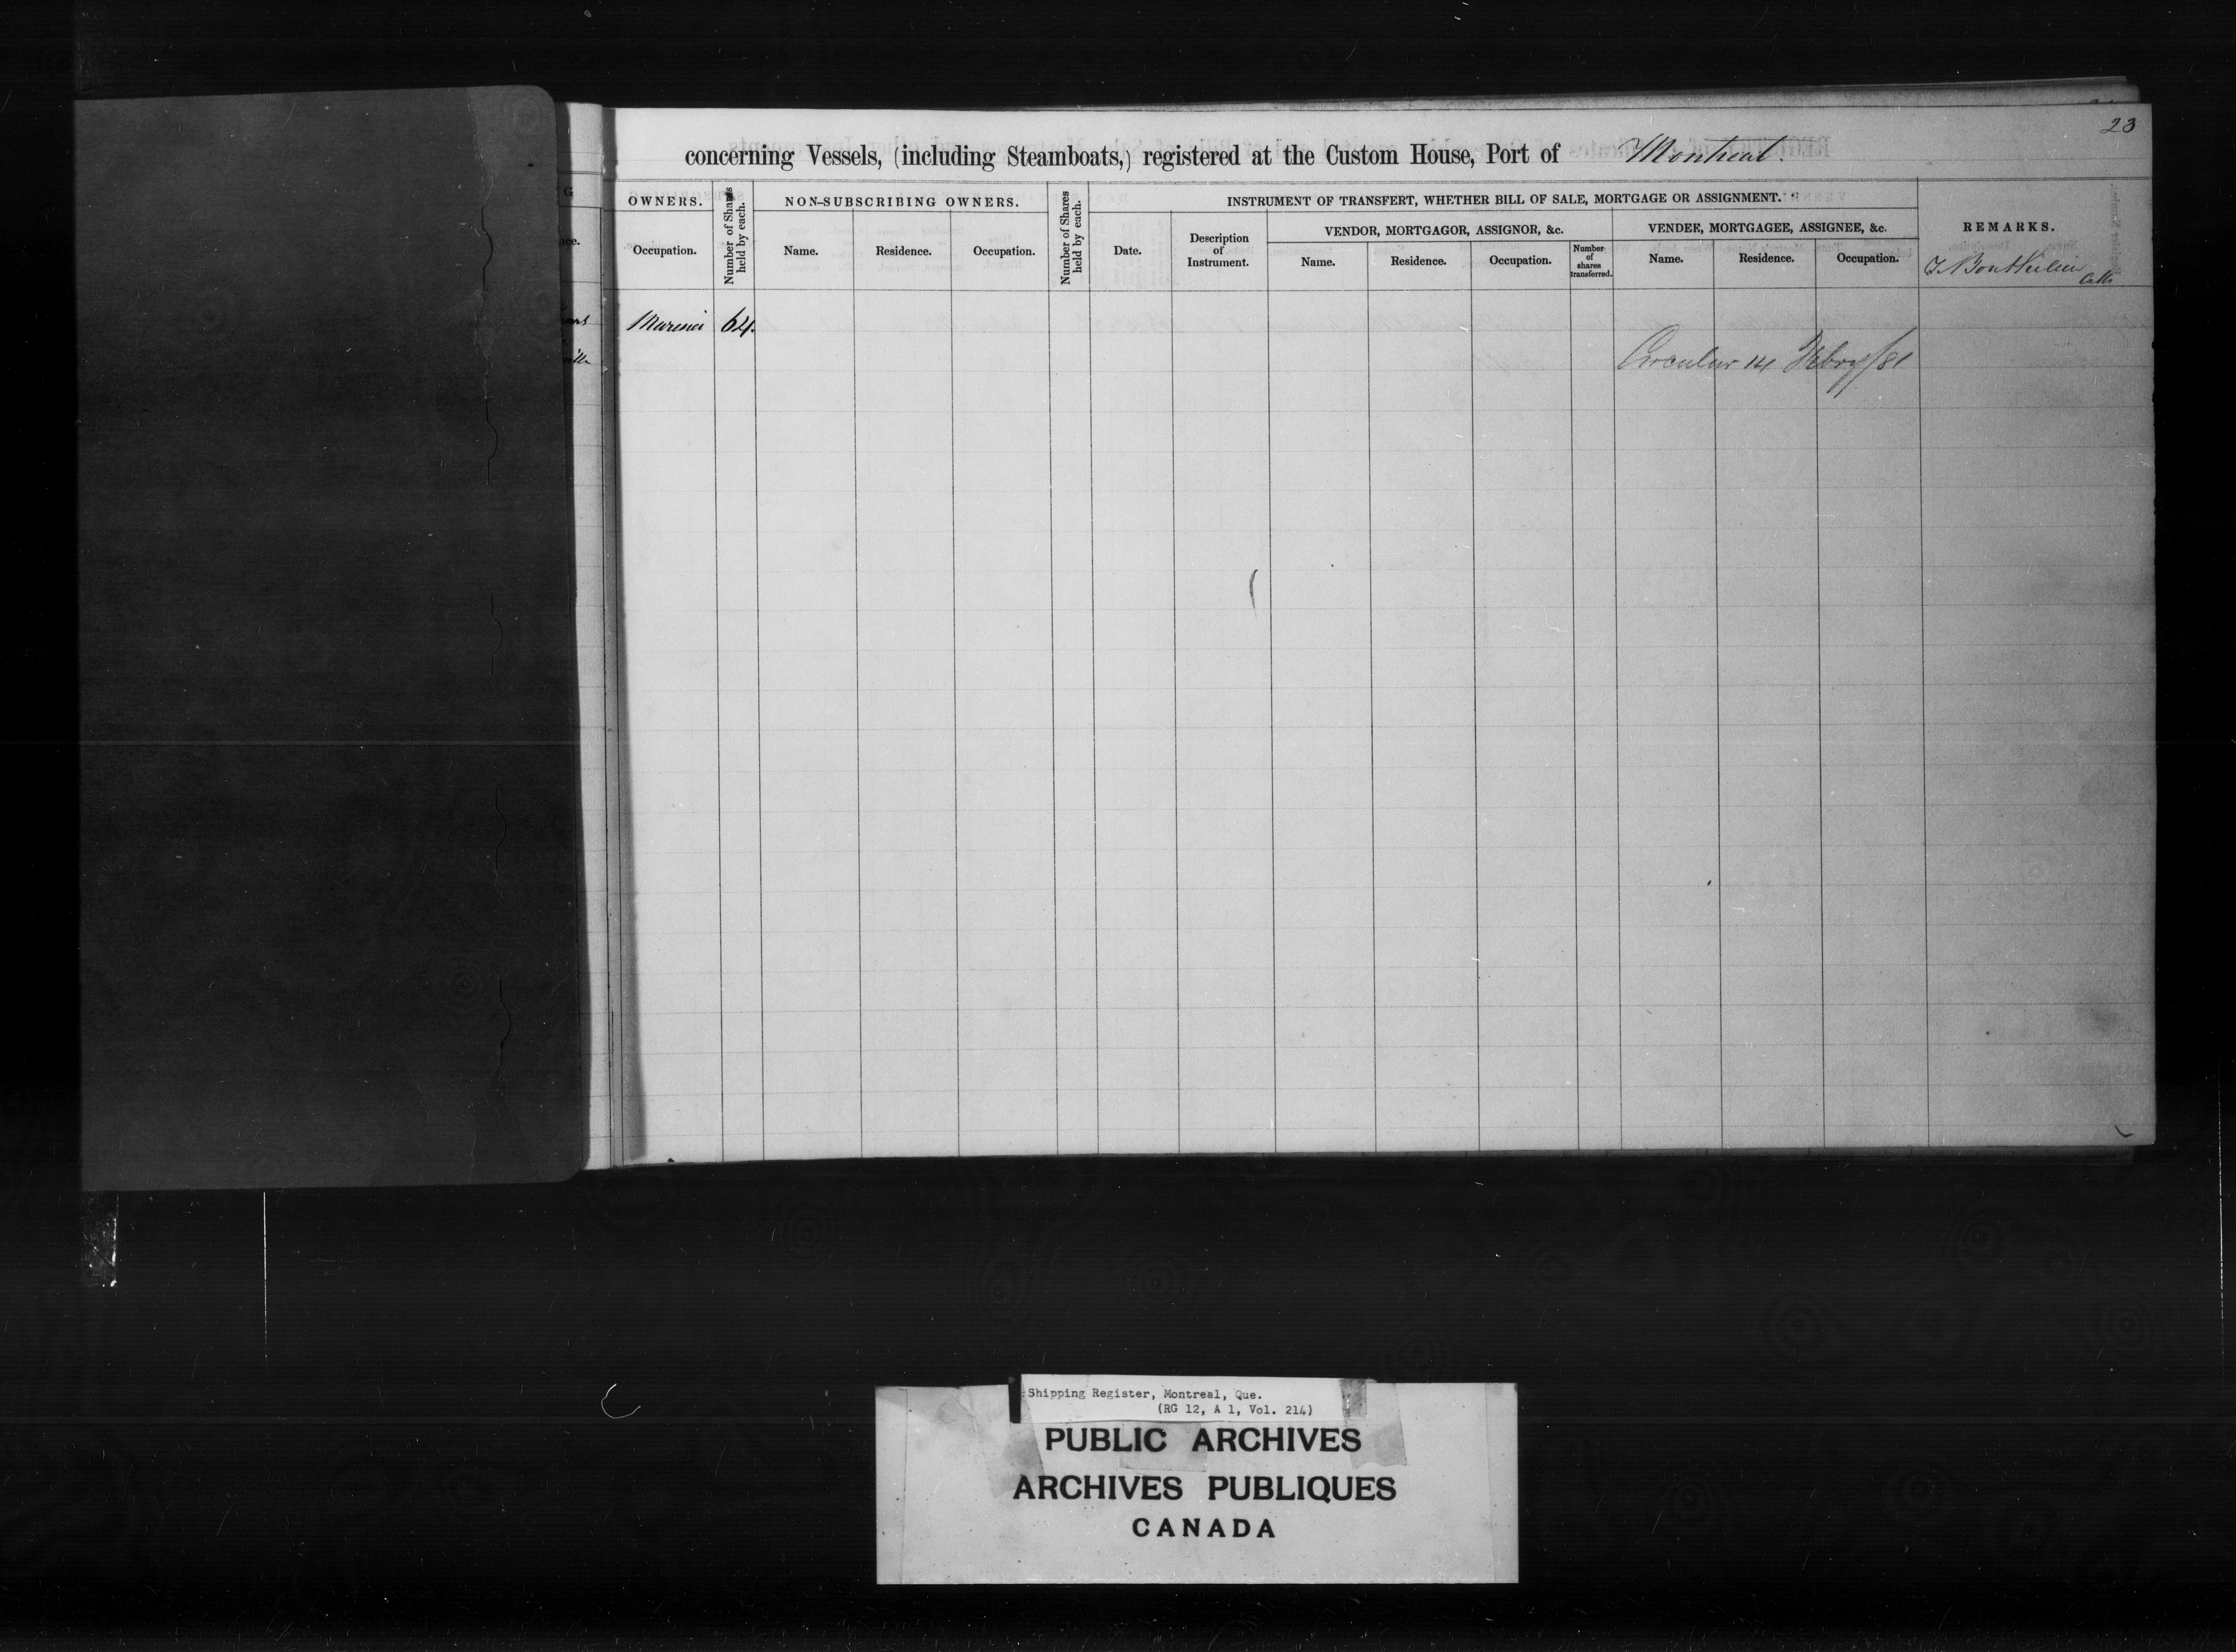 23
concerning Vessels, (including Steamboats,) registered at the Custom House, Port of Montreal.
G
OWNERS.
Number of Shares held by each.
NON-SUBSCRIBING OWNERS.
Number of Shares held by each.
INSTRUMENT OF TRANSFERT, WHETHER BILL OF SALE, MORTGAGE OR ASSIGNMENT.
REMARKS.
VENDOR, MORTGAGOR, ASSIGNOR, &c.
VENDEE, MORTGAGEE, ASSIGNEE, &c.
Occupation.
Name.
Residence.
Occupation.
Date.
Description
of
Instrument.
Name.
Residence.
Occupation.
Number
of
shares
transferred.
Name.
Residence.
Occupation.
Mariner 64.
Circular 14 Febry/81
Shipping Register, Montreal, Que.
(RG 12, A 1, Vol. 214)
PUBLIC ARCHIVES
ARCHIVES PUBLIQUES
CANADA